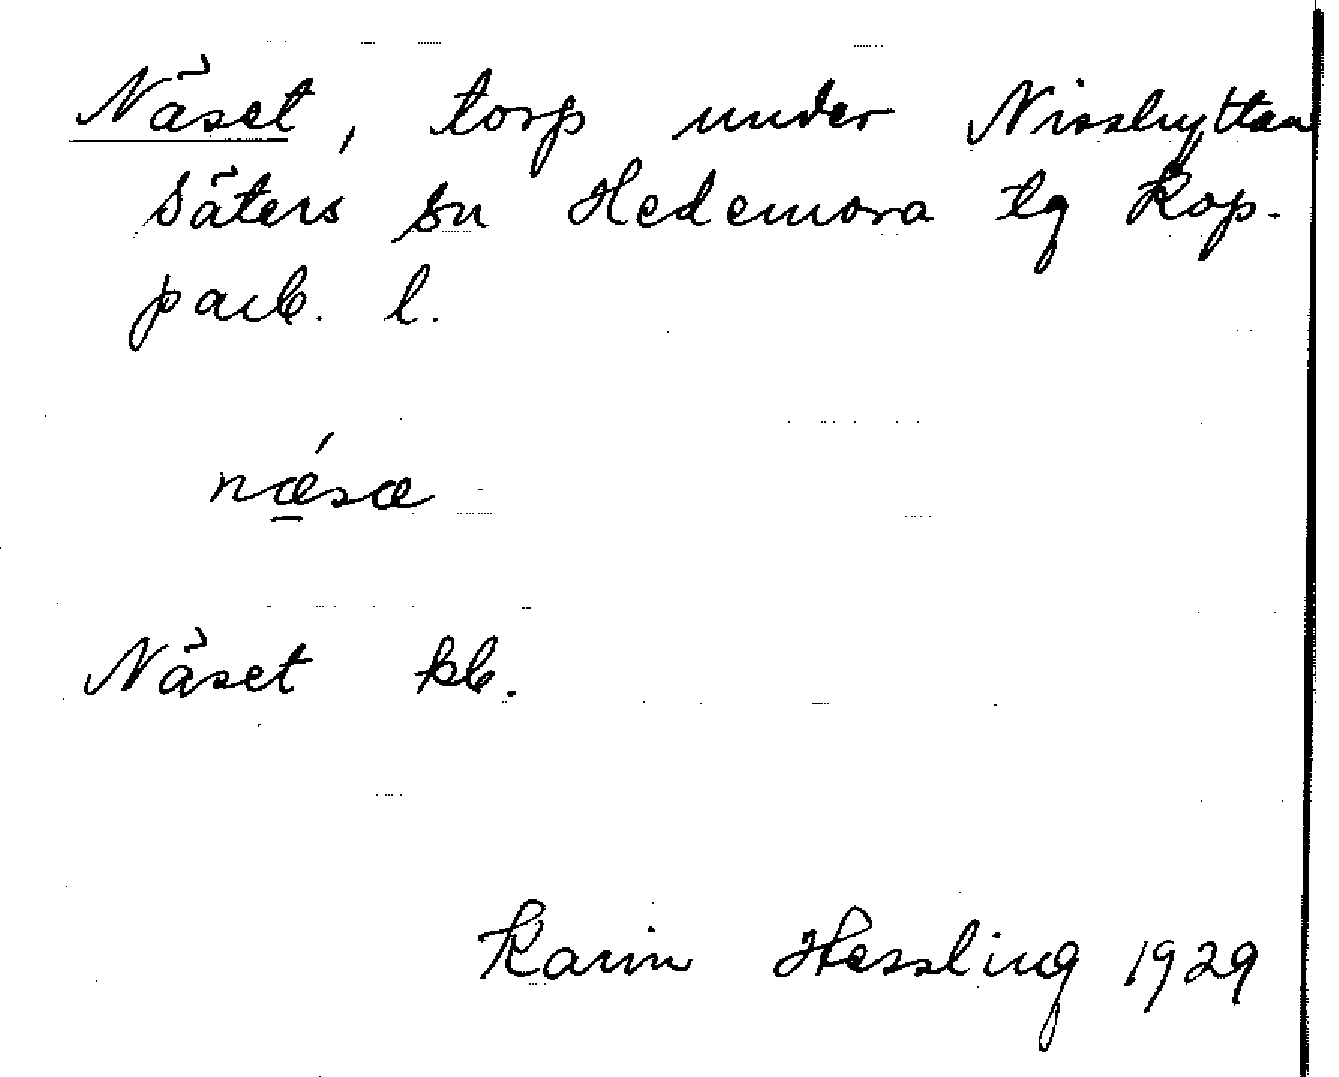 Näset, torp under Nisshyttan
Säters sn Hedemora tg Kop-
parb. l.
nǽ̱sæ
Näset kb.
Karin Hessling 1929